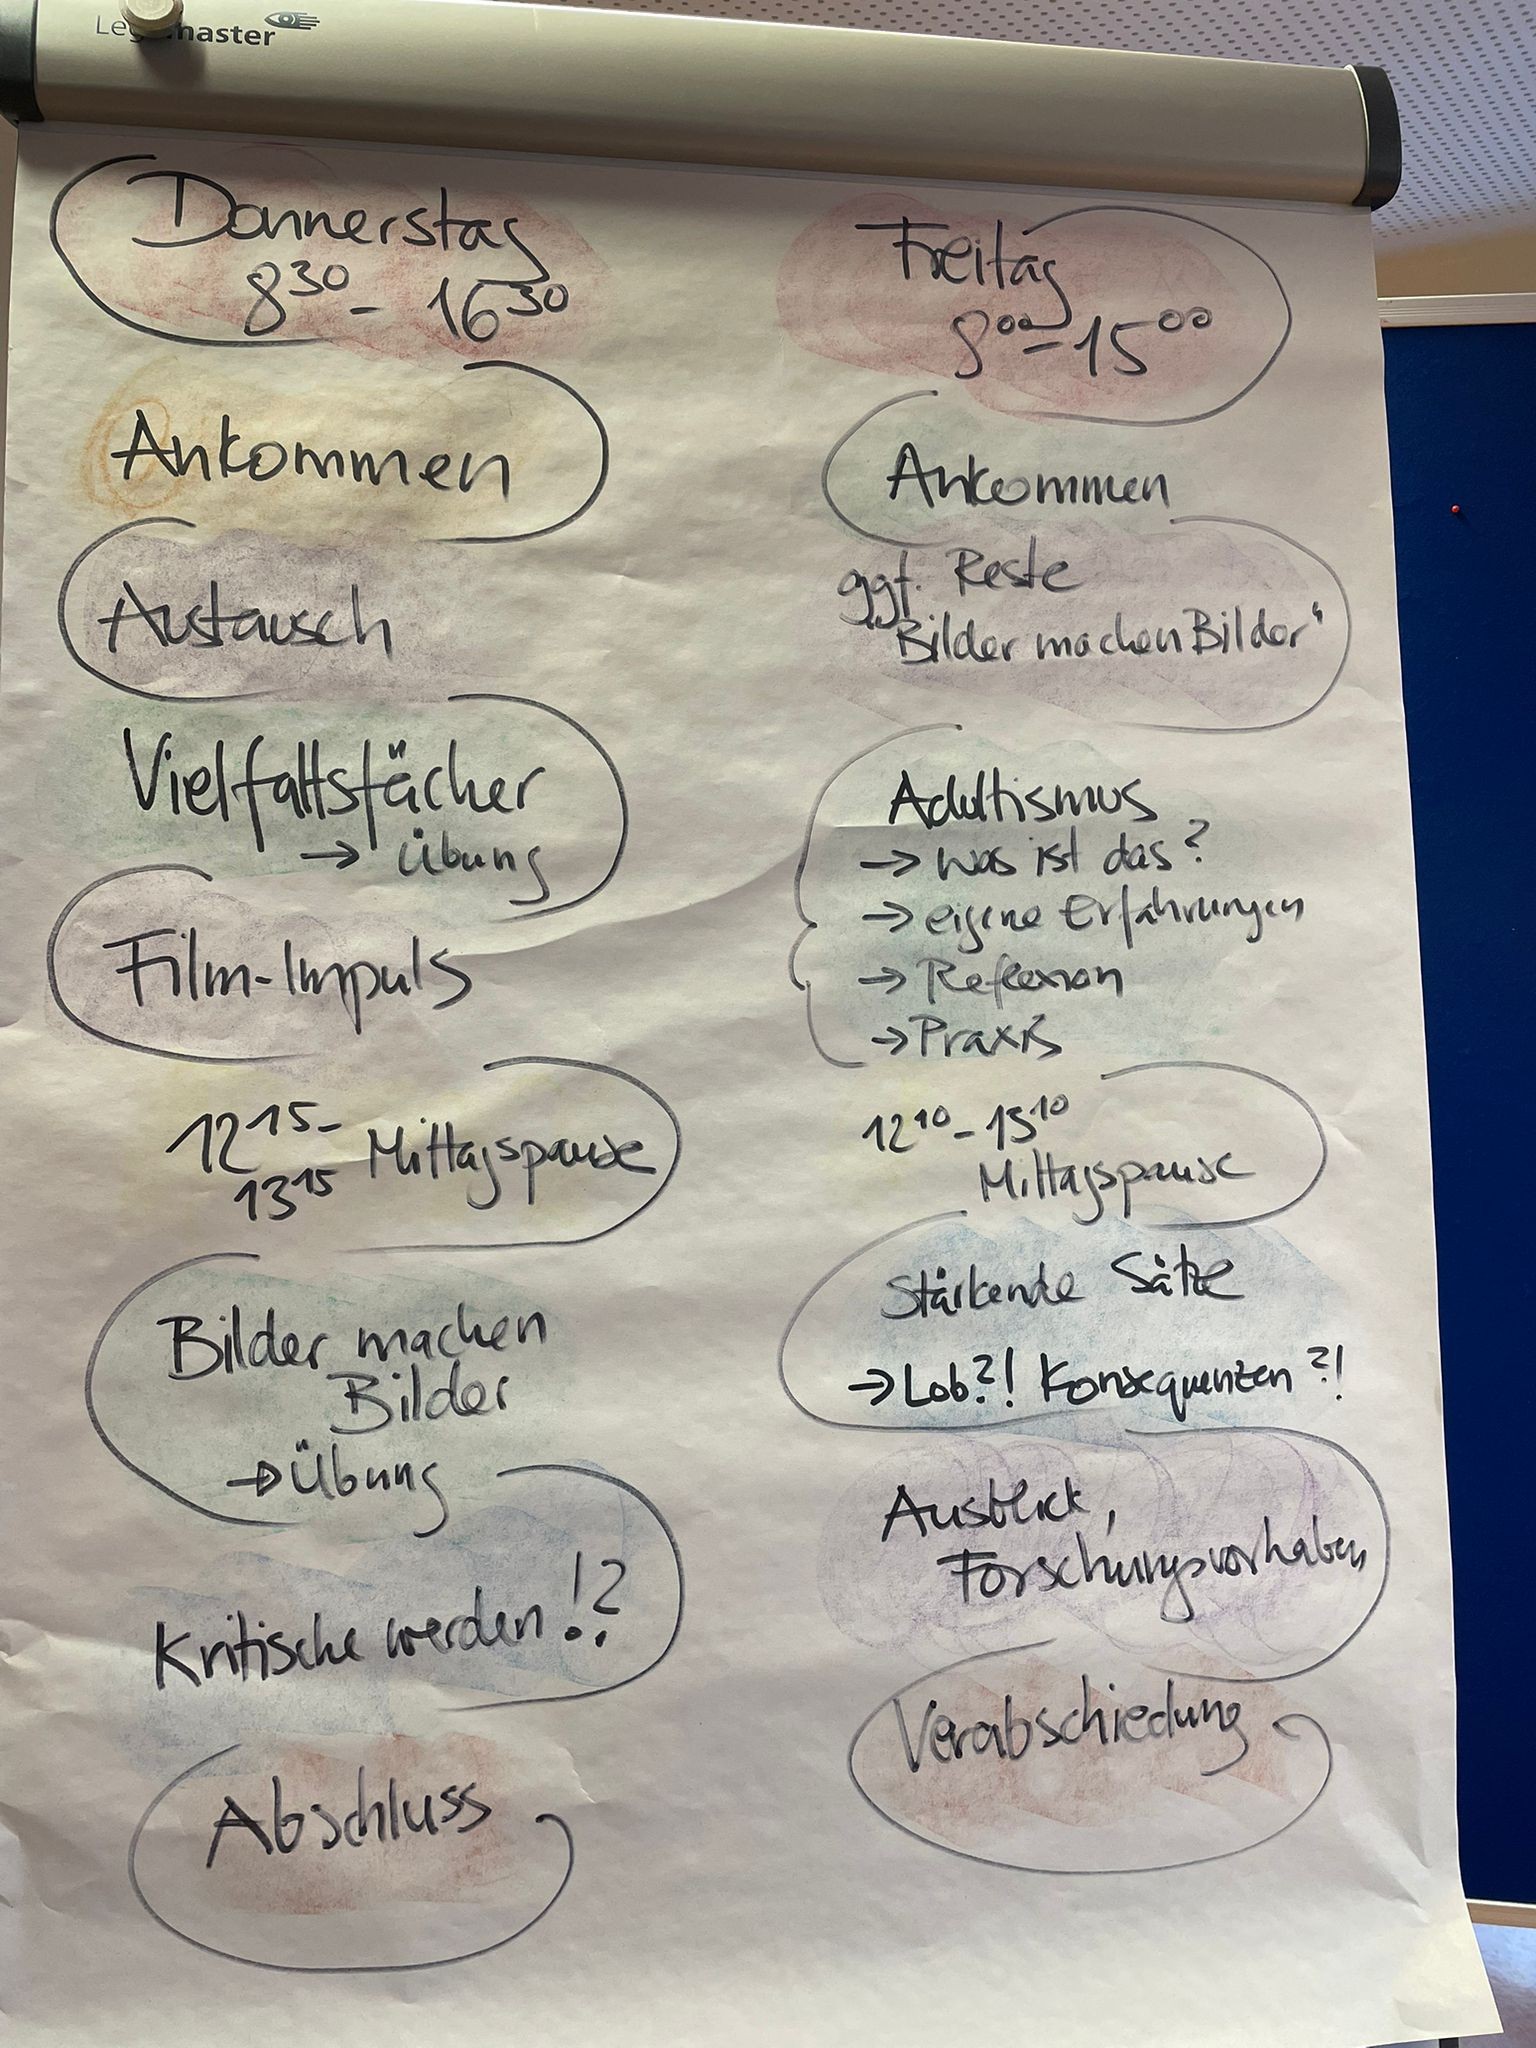 Legamaster
Donnerstag
8³⁰ - 16³⁰
Ankommen
Austausch
Vielfaltsfächer
→ Übung
Film-Impuls
12¹⁵-
13¹⁵ Mittagspause
Bilder machen
Bilder
→ Übung
Kritische werden!?
Abschluss
Freitag
8⁰⁰ - 15⁰⁰
Ankommen
ggf. Reste
"Bilder machen Bilder"
Adultismus
→ was ist das?
→ eigene Erfahrungen
→ Reflexion
→ Praxis
12¹⁰ - 13¹⁰
Mittagspause
Stärkende Sätze
→ Lob?! Konsequenzen?!
Ausblick,
Forschungsvorhaben
Verabschiedung